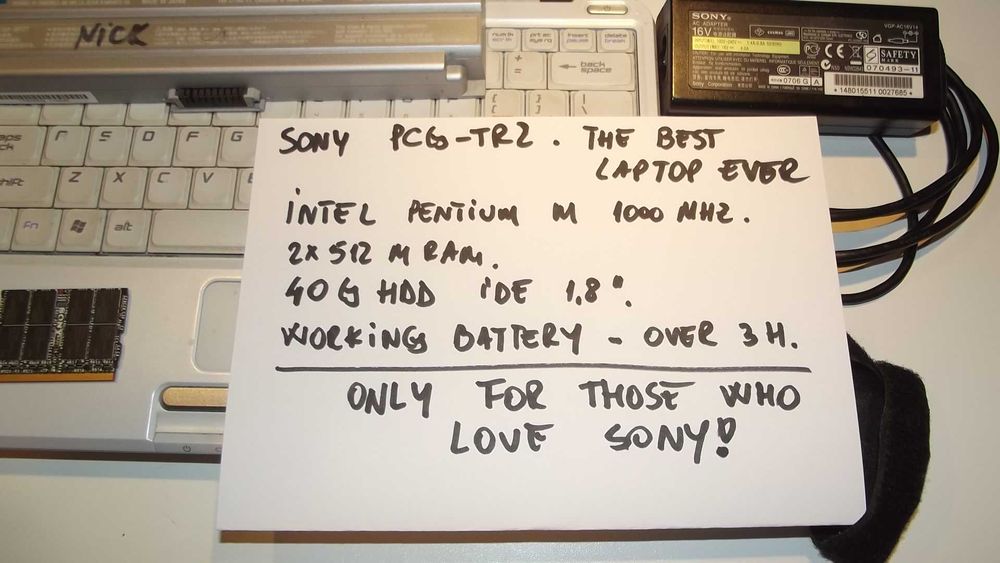 NICK
num lk
scr lk
prt sc
sys rq
insert
pause
delete
break
+
=
back
space
{
[
}
]
|
\
SONY
AC ADAPTER
16V
VGP-AC16V14
SAFETY
MARK
070493-11
0706 G A
* 148015511 0027685 *
Sony Corporation
caps
lock
S D F G
shift Z X C V
fn alt
SONY PCG-TR2. THE BEST
LAPTOP EVER
INTEL PENTIUM M 1000 MHZ.
2X 512 M RAM.
40 G HDD IDE 1,8".
WORKING BATTERY - OVER 3 H.
ONLY FOR THOSE WHO
LOVE SONY!